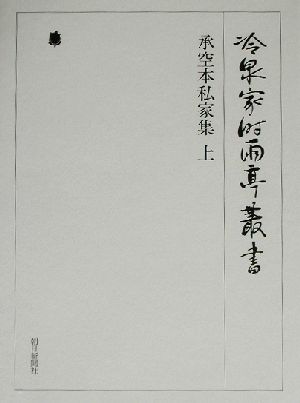 冷泉家時雨亭叢書
承空本私家集 上
朝日新聞社